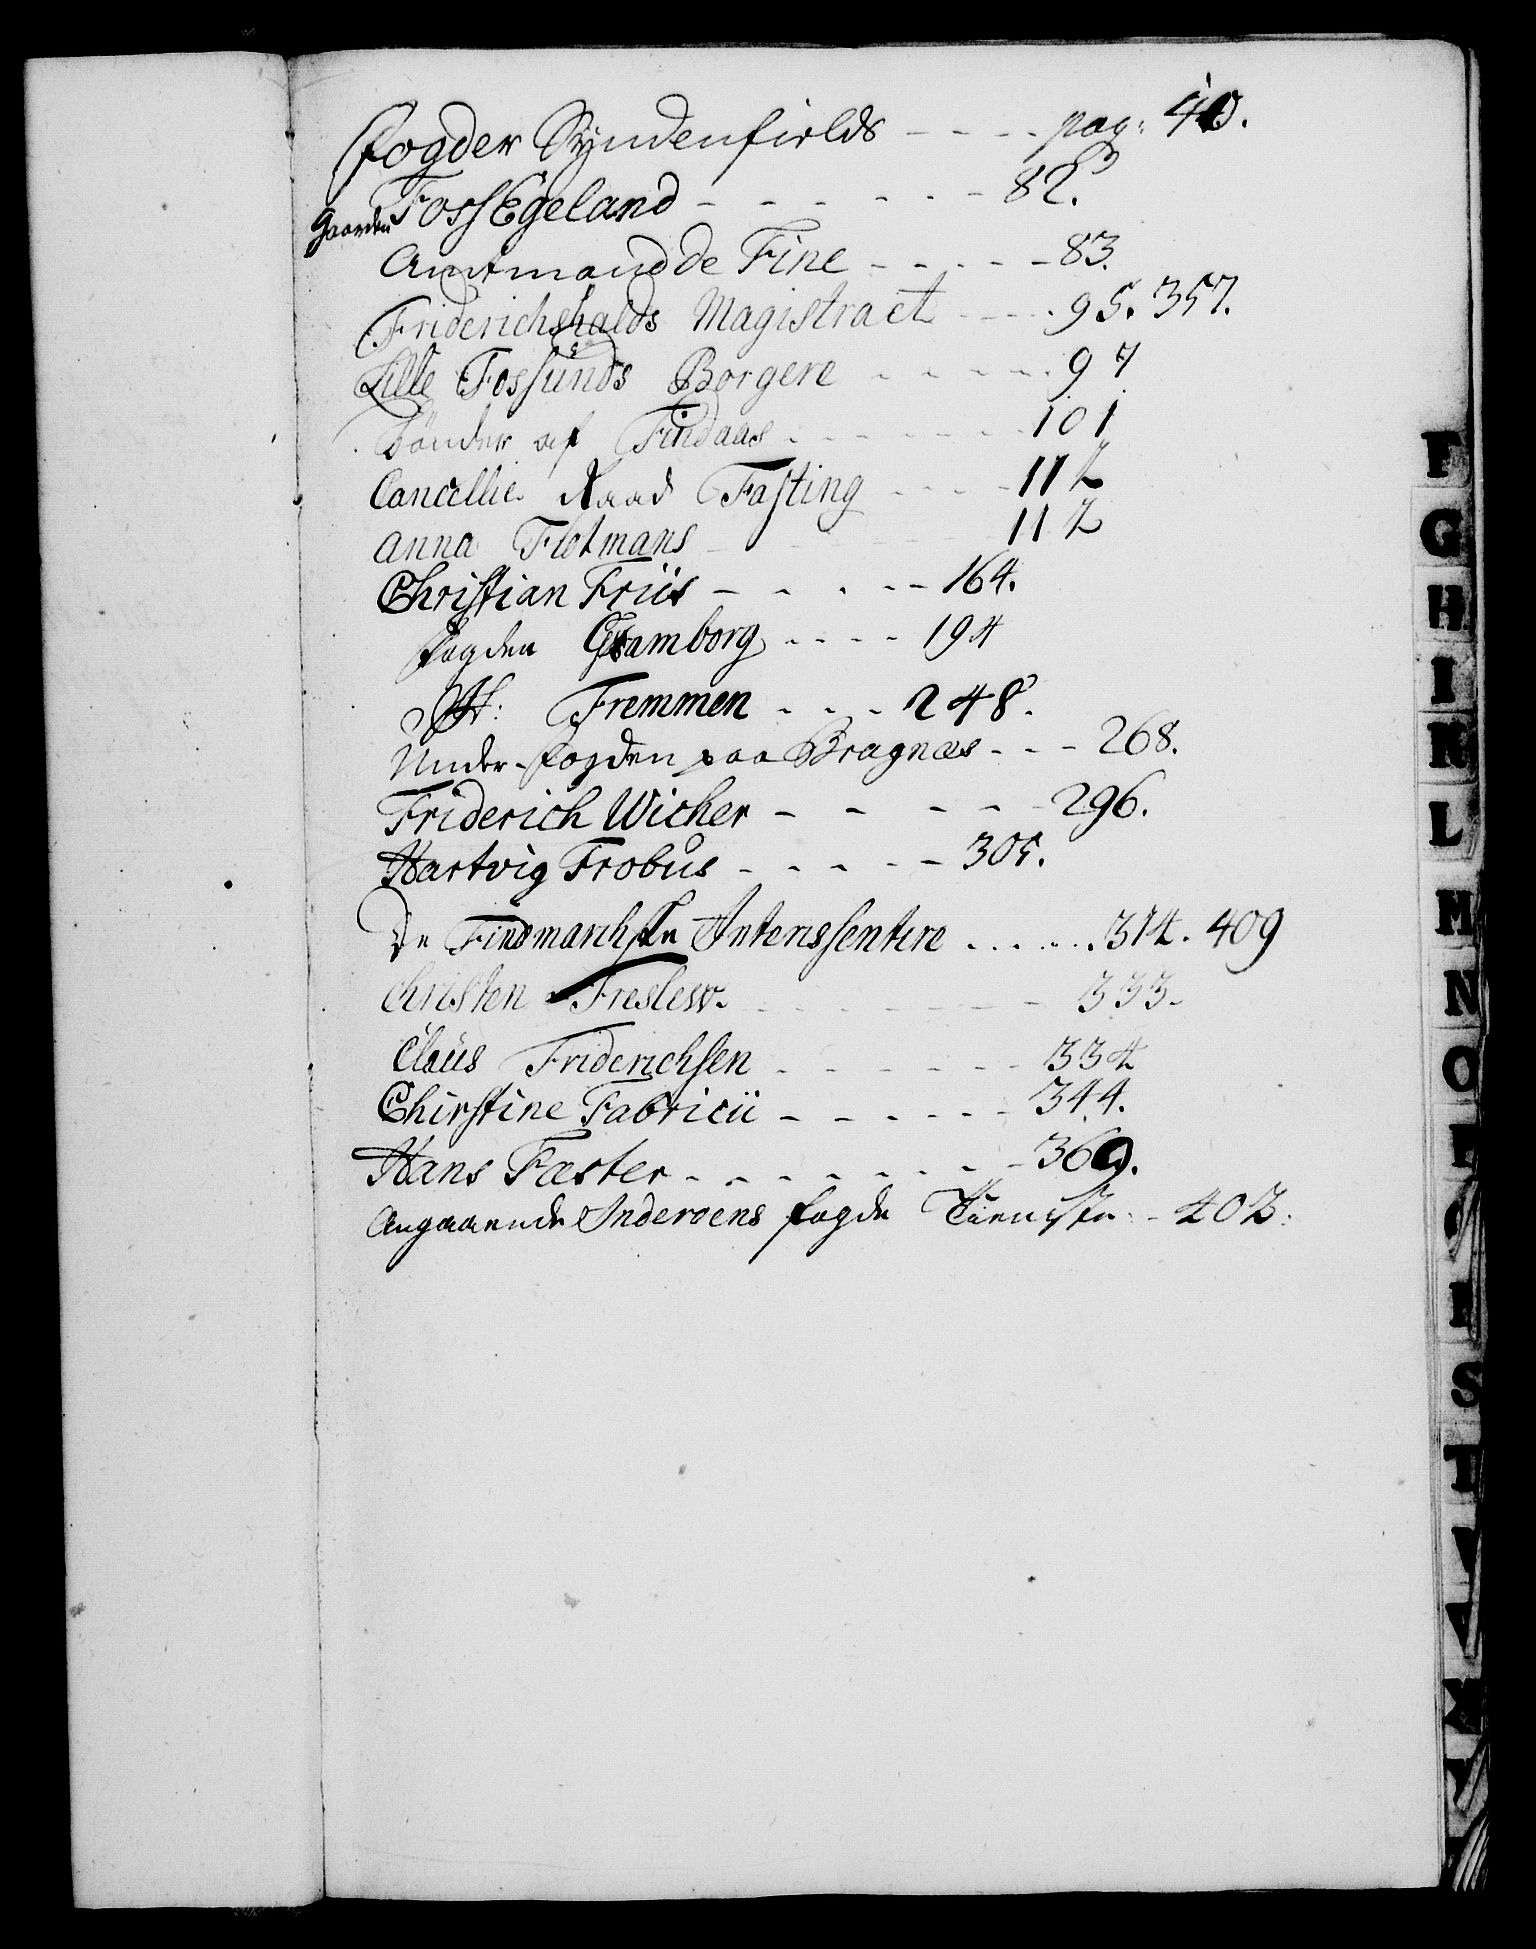 Fogder Syndenfields - - - - pag: 40.
Gaarden Foss Egeland - - - - - - 82.
Amtmand de Fine - - - - - 83.
Friderichshalds Magistraet - - - . 95. 357.
Lille Fossunds Borgere - - - - - . 97
Bönder af Findaas - - - - - - - 101
Cancellie Raad Fasting - - - - 112
Anna Flotmans - - - - - - 112
Christian Friis - - - - - 164.
Fogden Gramborg - - - - 194
H: Fremmen - - - 248.
Under-fogden paa Bragnæs - - - 268.
Friderich Wicher - - - - - 296.
Hartvig Frobus - - - - - 305.
De Findmarchske Interessentere . . . . . . 314. 409
Christen Freslew. - - - - - - - 333.
Claus Friderichsen - - - - - - 334
Chirstine Fabricii - - - - - - 344.
Hans Fæster - - - - - - - - 369.
Angaaende Inderoens fogde Tieneste - 403.
F
G
H
I
K
L
M
N
O
P
Q
R
S
T
V
W
X
Y